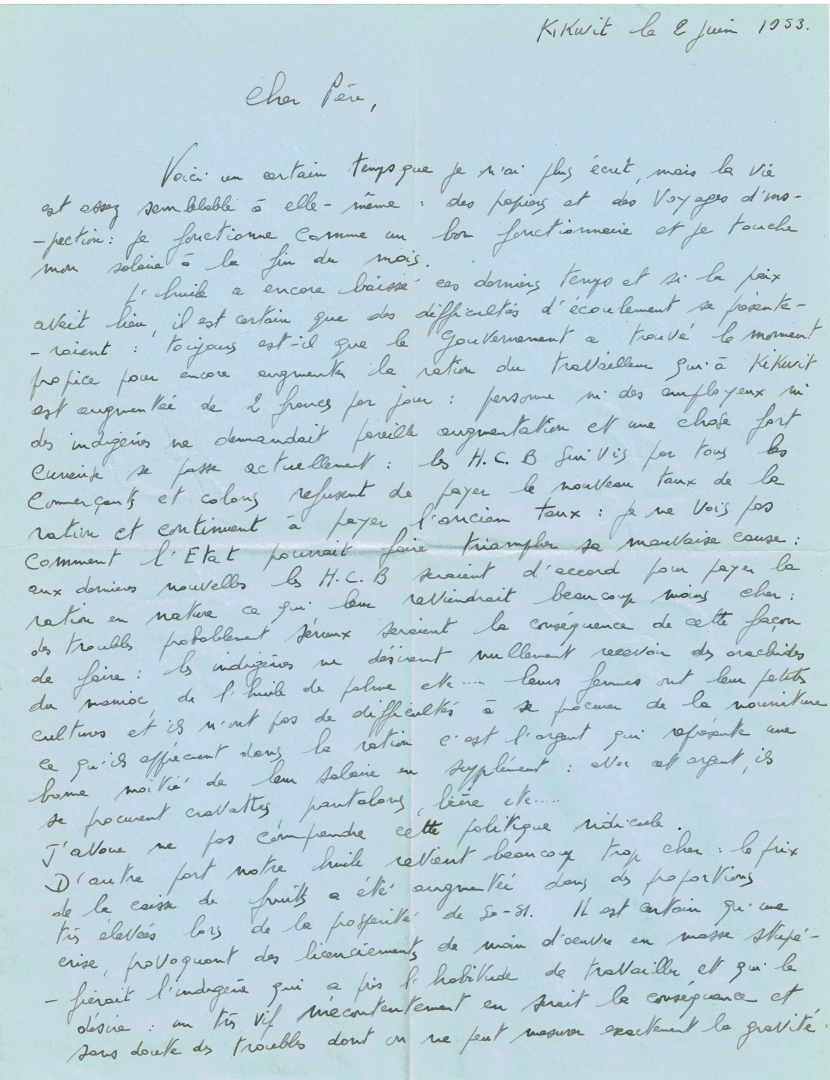 Kikwit le 2 juin 1953.
Cher Père,
Voici un certain temps que je n'ai plus écrit, mais la vie
est assez semblable à elle-même : des papiers et des voyages d'ins-
-pection : je fonctionne comme un bon fonctionnaire et je touche
mon salaire à la fin du mois.
L'huile a encore baissé ces derniers temps et si la paix
avait lieu, il est certain que des difficultés d'écoulement se présente-
-raient : toujours est-il que le Gouvernement a trouvé le moment
propice pour encore augmenter la ration du travailleur qui à Kikwit
est augmentée de 2 francs par jour : personne ni des employeurs ni
des indigènes ne demandait pareille augmentation et une chose fort
curieuse se passe actuellement : les H.C.B suivis par tous les
commerçants et colons refusent de payer le nouveau taux de la
ration et continuent à payer l'ancien taux : je ne vois pas
comment l'Etat pourrait faire triompher sa mauvaise cause :
aux dernières nouvelles les H.C.B seraient d'accord pour payer la
ration en nature ce qui leur reviendrait beaucoup moins cher :
des troubles probablement sérieux seraient la conséquence de cette façon
de faire : les indigènes ne désirent nullement recevoir des arachides
du manioc de l'huile de palme etc.... leurs femmes ont leur petits
cultures et ils n'ont pas de difficultés à se procurer de la nourriture
ce qu'ils apprécient dans la ration c'est l'argent qui représente une
bonne moitié de leur salaire en supplément : avec cet argent, ils
se procurent cravattes, pantalons, bière etc.....
J'avoue ne pas comprendre cette politique ridicule.
D'autre part notre huile revient beaucoup trop cher : le prix
de la caisse de fruits a été augmentée dans des proportions
très élevées lors de la prospérité de 50-51. Il est certain qu'une
crise, provoquant des licenciements de main d'oeuvre en masse stupé-
-fierait l'indigène qui a pris l'habitude de travailler et qui le
désire : un très vif mécontentement en serait la conséquence et
sans doute des troubles dont on ne peut mesurer exactement la gravité.